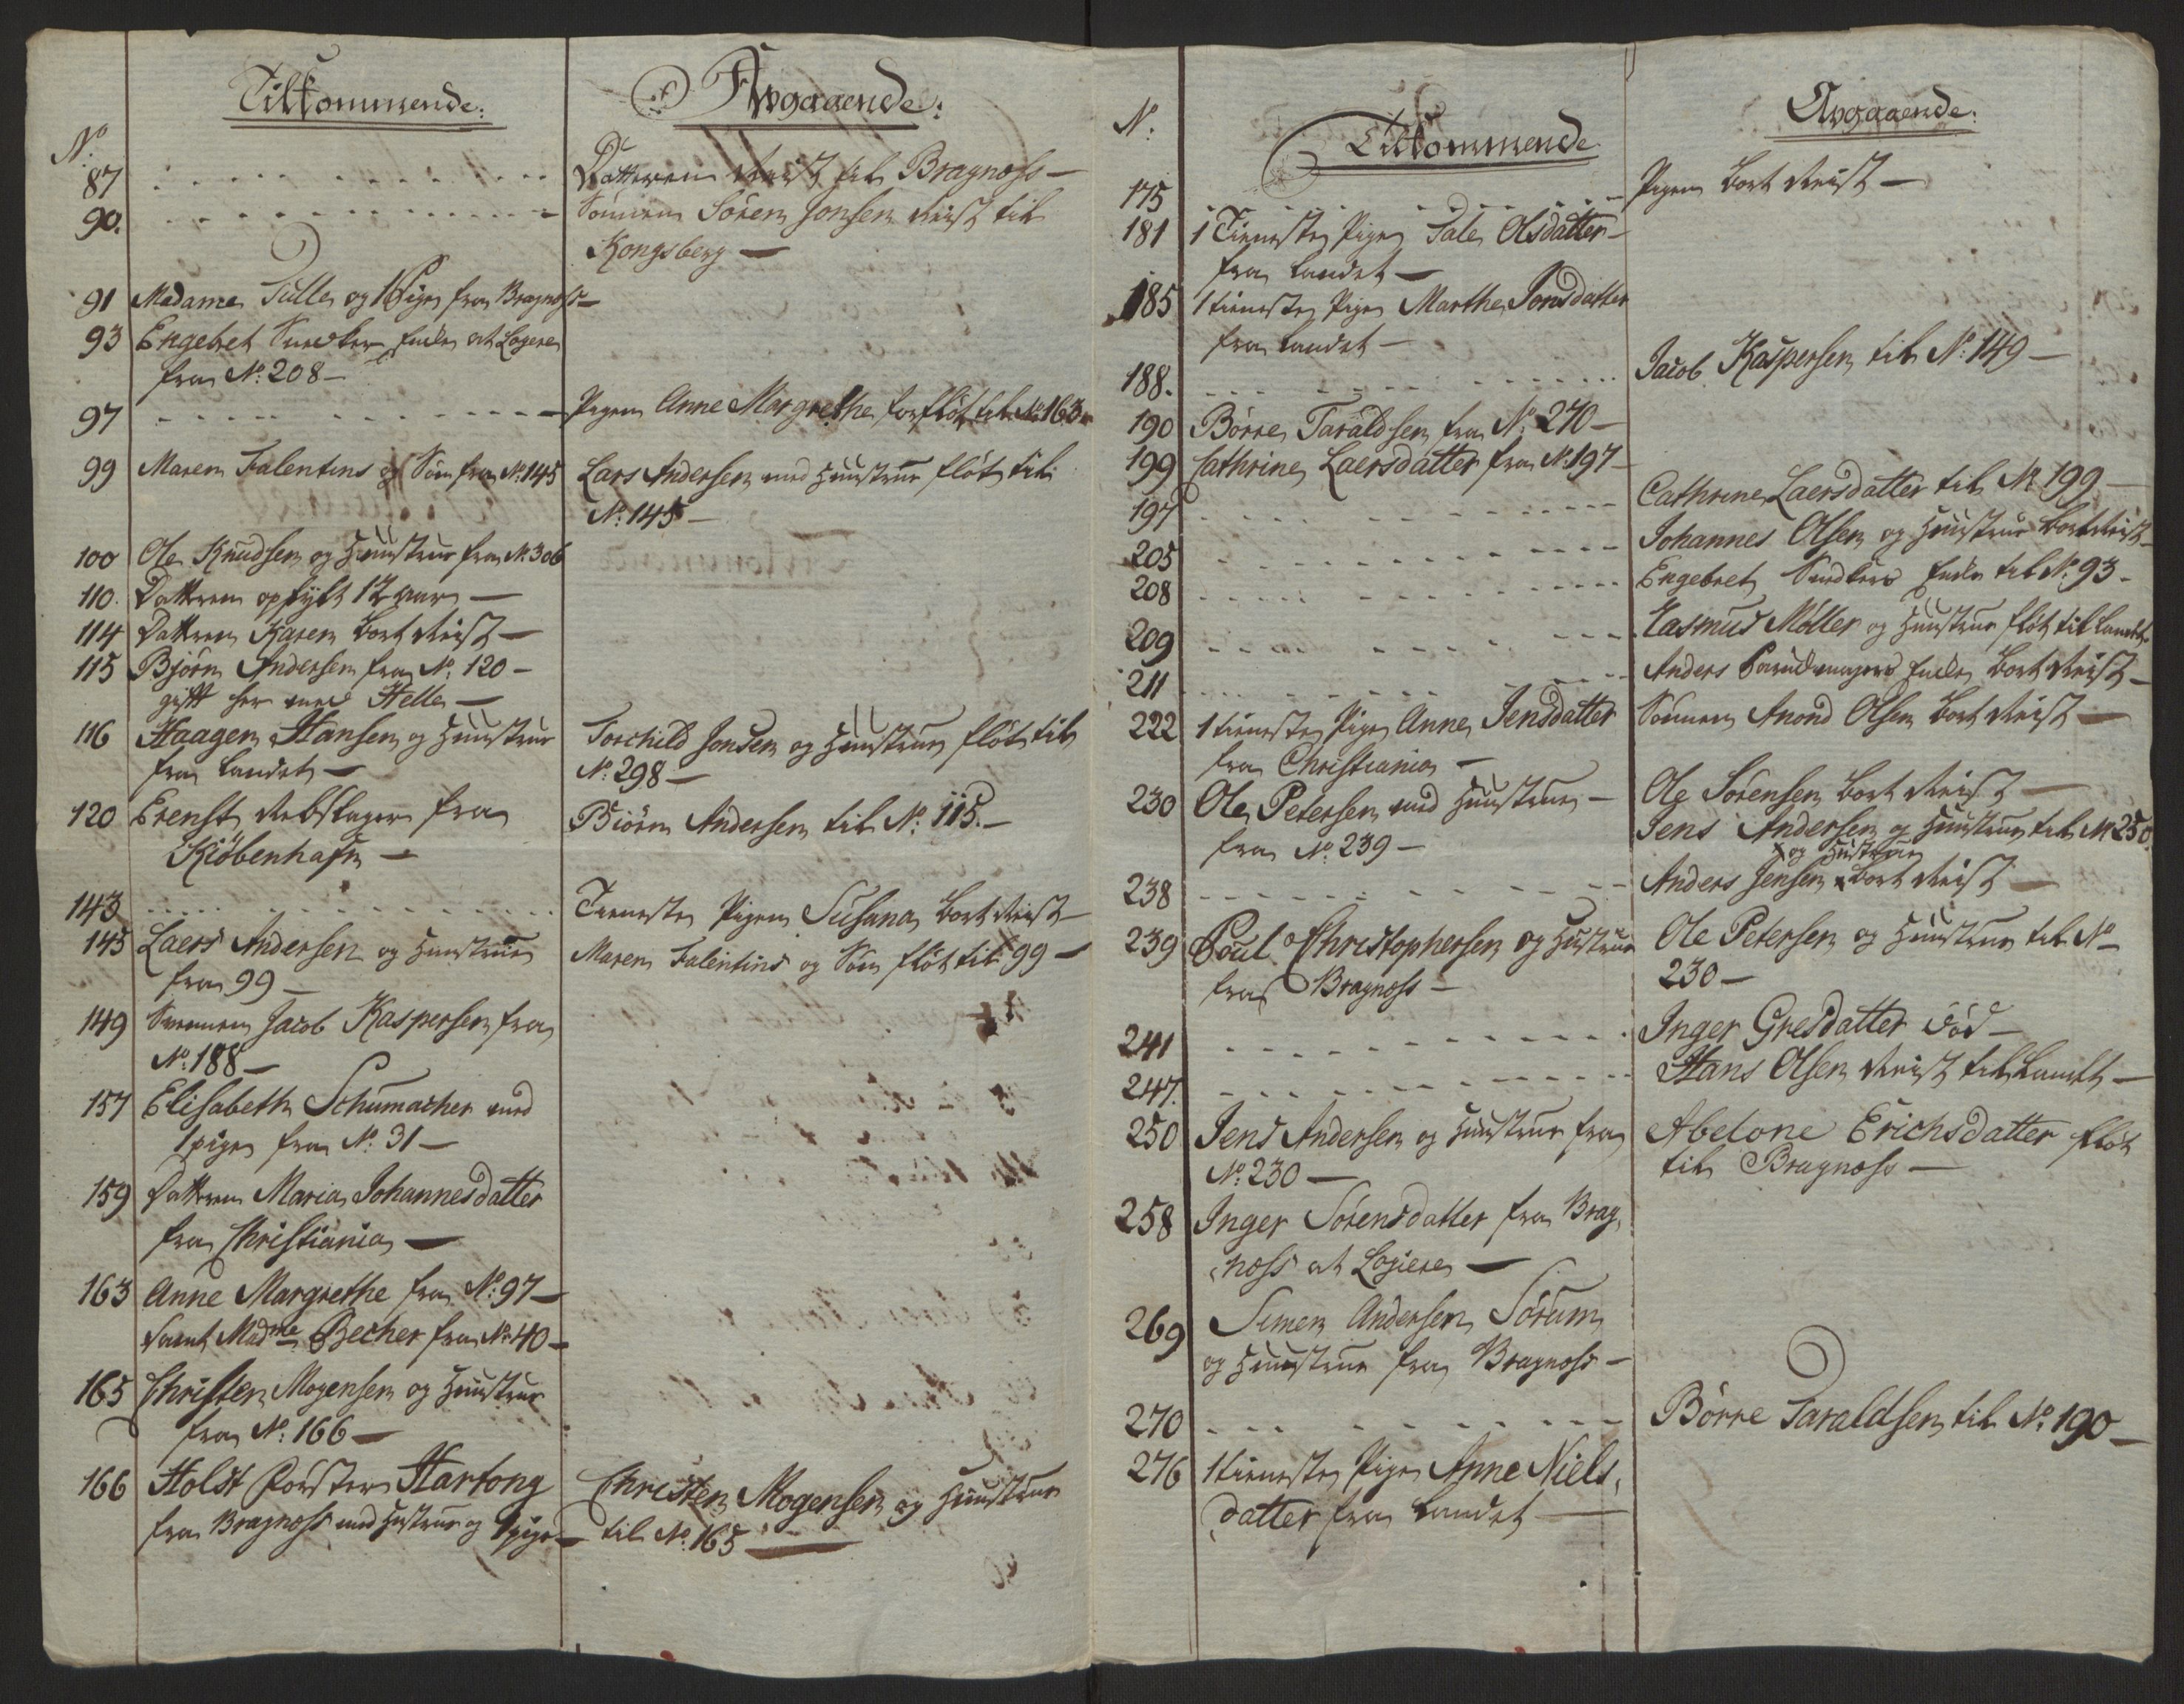 Tilkommende:
Avgaaende:
No
87 Datteren Reist til Bragnæss
90. Sönnen Sören Jonsen Reist til
Kongsberg
91 Madame Tulle og 1 Pige fra Bragnæss
93 Engebret Enke at Logere
fra No. 208
97 Pigen Anne Margrethe forflöt til No. 163
99 Maren Falentins og Sön fra No. 145
Lars Andersen med Huustrue flöt til
No. 145
100 Ole Knudsen og Huustrue fra No. 306
110. Datteren opfylt 12 aar
114 Datteren Karen bort Reist
115 Bjórn Andersen fra No. 120
gift her med Helle
116 Haagen Hansen og Huustrue
fra Landet
Torchild Jonsen og Huustrue flöt til
No. 298
120 Erenst Rebslager fra
Kiöbenhafn
Biörn Andersen til No. 115.
143 Tieneste Pigen Susana bort Reist
145 Laers Andersen og Huustrue
fra 99
Maren Falentins og Sön flöt til 99
149 Svennen Jacob Kaspersen fra
No. 188
157 Elisabeth Schumacher med
1 pige fra No. 31
159 Datteren Maria Johannesdatter
fra Christiania
163 Anne Margrethe fra No. 97
Samt Madme Becher fra No. 40
165 Christen Mogensen og Huustrue
fra No. 166
166 Holst Förster Hartong
fra Bragnæss med Hustrue og 1 pige
Christen Mogensen og Huustrue
til No. 165
No.
Tilkommende
Avgaaende:
175 Pigen bort Reist
181 1 Tieneste Pige Sale Olsdatter
fra Landet
185 1 tieneste Pige Marthe Jonsdatter
fra Landet
188. Jacob Kaspersen til No. 149
190 Börre Taraldsen fra No. 270
199 Cathrine Laersdatter fra No. 197
197 Cathrine Laersdatter til No. 199
205 Johannes Olsen og Huustrue bort Reist
208 Engebret Enke til No. 93
209 Rasmus Möller og Huustrue flöt til Landet
211 Anders Enke bort Reist
222 1 tieneste Pige Anne Jensdatter
fra Christiania
Sönnen Anond Olsen bort Reist
230 Ole Petersen med Huustrue
fra No. 239
Ole Sörensen bort Reist
Jens Andersen og Huustrue til No. 250
x og Hustrue
238 Anders Jensen x bort Reist
239 Poul Christophersen og Hustrue
fra Bragnoss
Ole Petersen og Huustrue til No
230
241 Inger Gresdatter död
247. Hans Olsen Reist til Landet
250 Jens Andersen og Huustrue fra
No. 230
Abelone Erichsdatter flöt
til Bragnoss
258 Inger Sörensdatter fra Brag,
noss at Logiere
269 Simen Andersen Sörum
og Huustrue fra Bragnoss
270 Börre Taraldsen til No. 190
276 1 tieneste Pige Anne Niels,
datter fra Landet